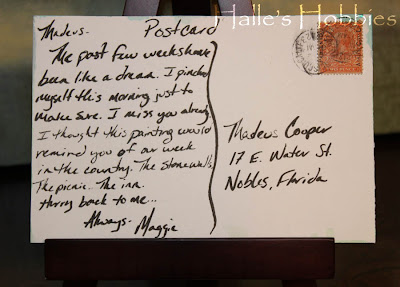 Halle's Hobbies
Postcard
Madeus-
The past few weeks have
been like a dream. I pinched
myself this morning just to
make sure. I miss you already.
I thought this painting would
remind you of our week
in the country. The stone walls.
The picnic. The inn.
Hurry back to me...
Always-
Maggie
Madeus Cooper
17 E. Water St.
Nobles, Florida